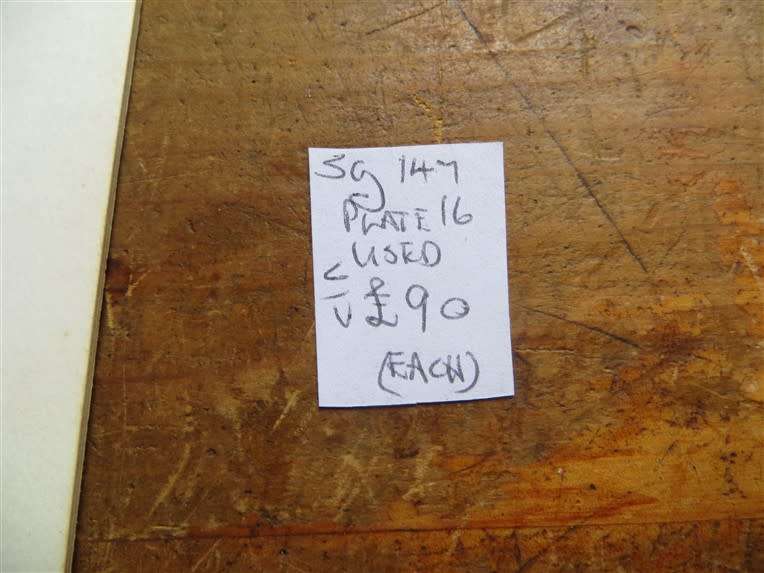 SG 147
PLATE 16
USED
C/V £90
(EACH)